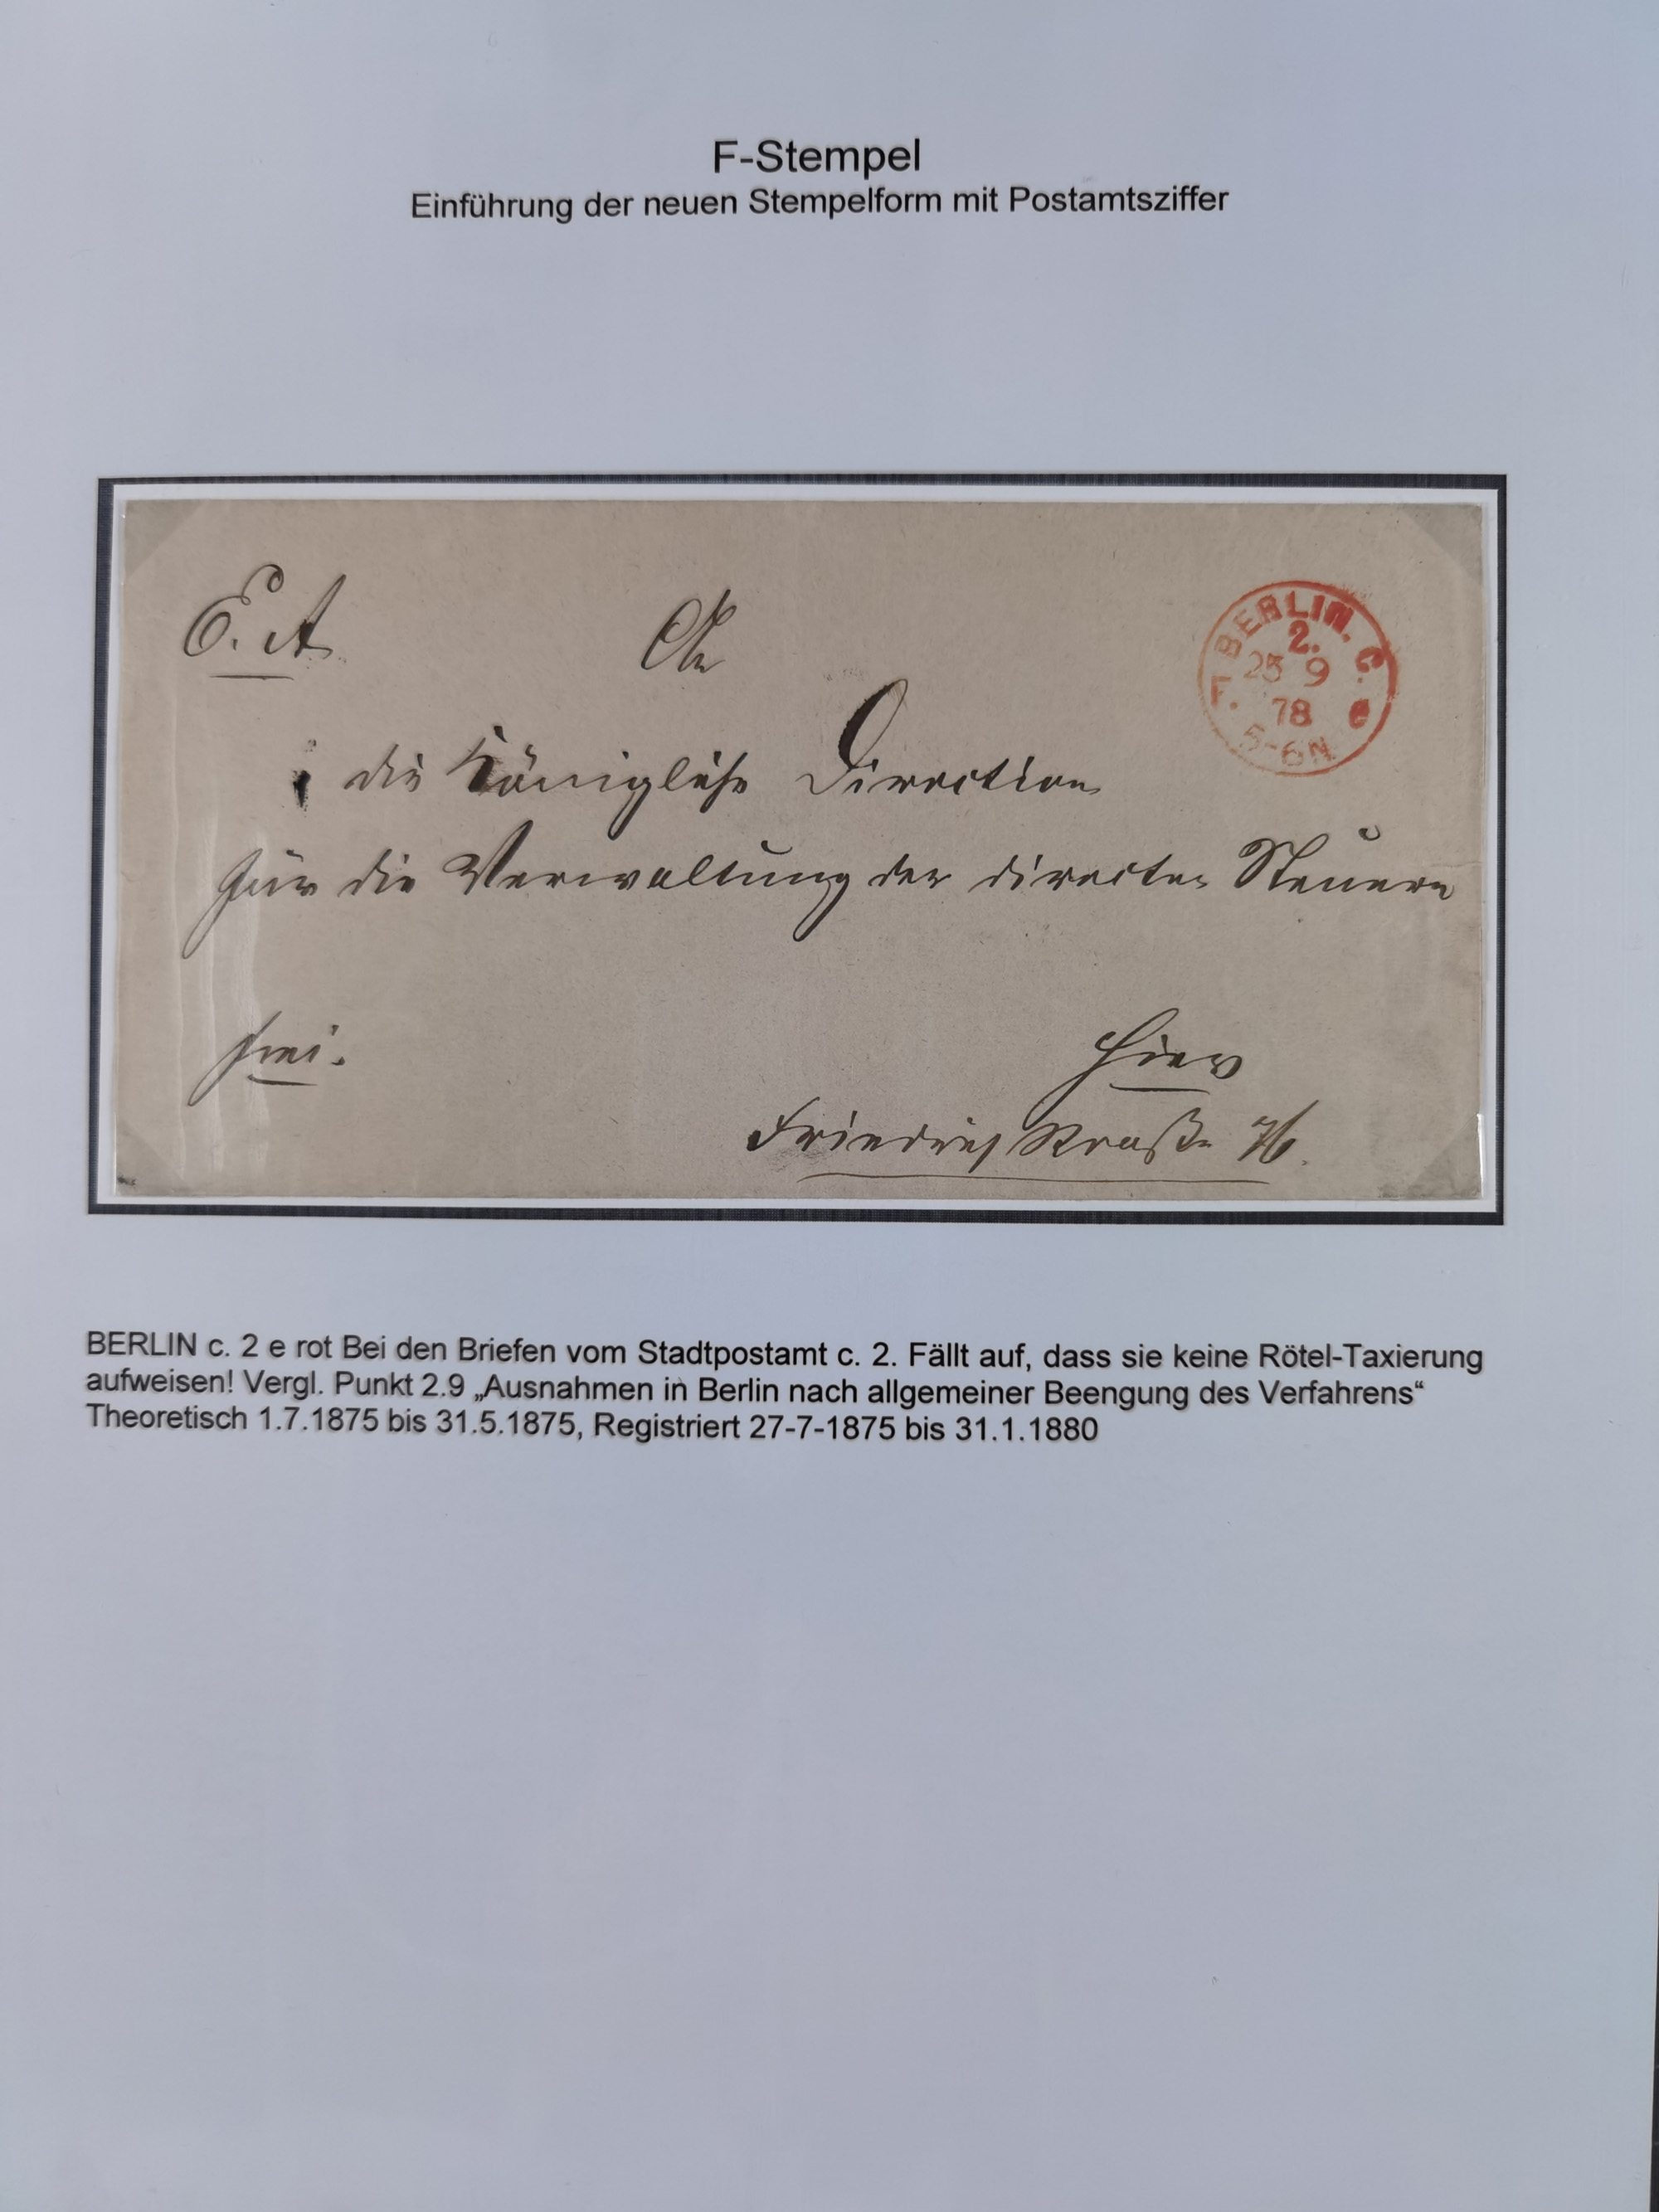 F-Stempel
Einführung der neuen Stempelform mit Postamtsziffer
E. A
An
F. BERLIN. C.
2.
25 9
78 e
5-6N
die Königliche Direction
für die Verwaltung der directen Steuern
frei.
hier
Friedrichstraße 76.
BERLIN c. 2 e rot Bei den Briefen vom Stadtpostamt c. 2. Fällt auf, dass sie keine Rötel-Taxierung
aufweisen! Vergl. Punkt 2.9 „Ausnahmen in Berlin nach allgemeiner Beengung des Verfahrens“
Theoretisch 1.7.1875 bis 31.5.1875, Registriert 27-7-1875 bis 31.1.1880